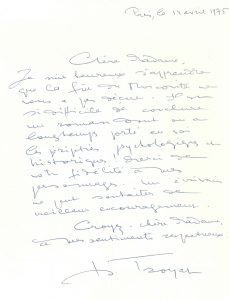 Paris, le 14 avril 1975
Chère Madame,
Je suis heureux d'apprendre
que la fin du Moscovite ne
vous a pas déçue. Il est
si difficile de conclure
un roman dont on a
longtemps porté en soi
les péripéties psychologiques et
historiques. Merci de
votre fidélité à mes
personnages. Un écrivain
ne peut souhaiter de
meilleur encouragement.
Croyez, chère Madame,
à mes sentiments respectueux.
H Troyat